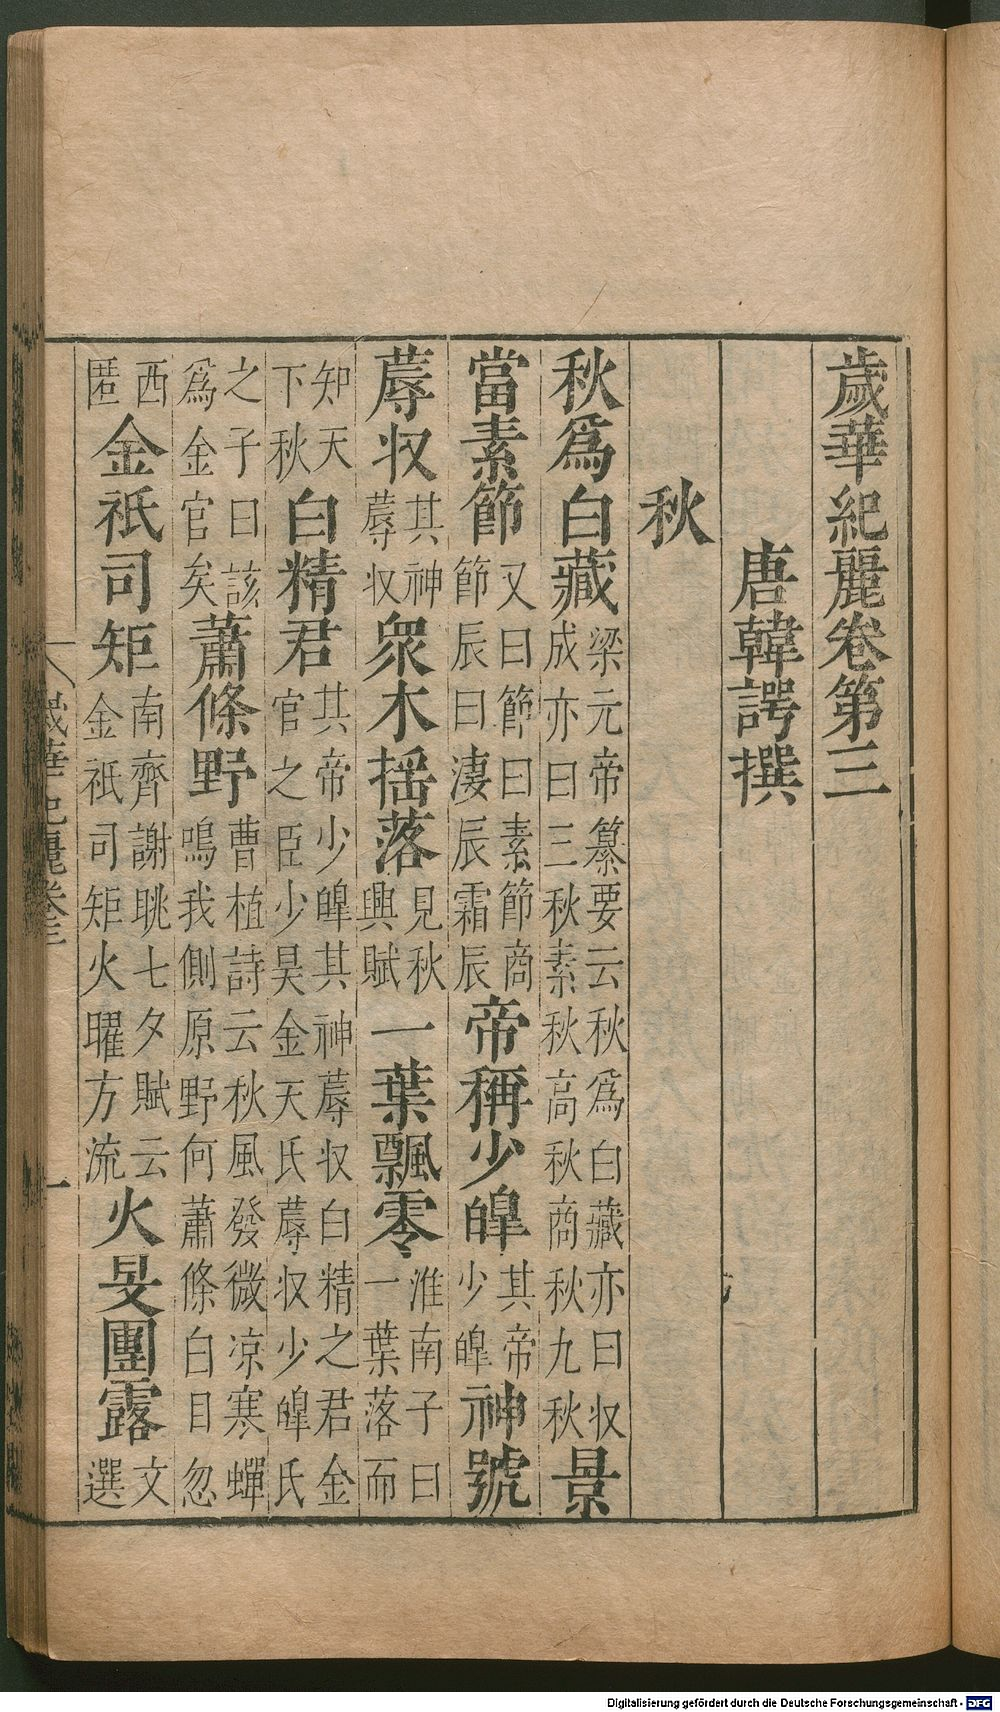 歲華紀麗卷第三
唐韓諤撰
秋
秋爲白藏梁元帝纂要云秋爲白藏亦曰収成亦曰三秋素秋高秋商秋九秋景
當素節又曰節曰素節商節辰曰淒辰霜辰帝稱少皥其帝少皥神號
蓐収其神蓐収衆木揺落見秋興賦一葉飄零淮南子曰一葉落而
知天下秋白精君其帝少皥其神蓐収白精之君金官之臣少昊金天氏蓐収少皥氏
之子曰該爲金官矣蕭條野曹植詩云秋風發微凉寒蟬鳴我側原野何蕭條白日忽
西匿金祇司矩南齊謝眺七夕賦云金祇司矩火曜方流火旻團露文選
歲華紀麗卷三 一
Digitalisierung gefördert durch die Deutsche Forschungsgemeinschaft - DFG